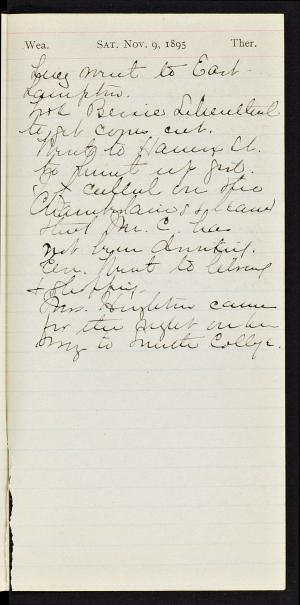 Wea. SAT. NOV. 9, 1895 Ther.
Lucy went to East-
hampton.
Took Bernie Lilienthal
to get corns cut.
Went to Hanover St.
to hunt up girl.
Called on the
Chamberlains & learned
that Mr. C. has
not been drinking.
Eve. Went to library
& shopping.
Mrs. Houghton came
for the night on her
way to Smith College.